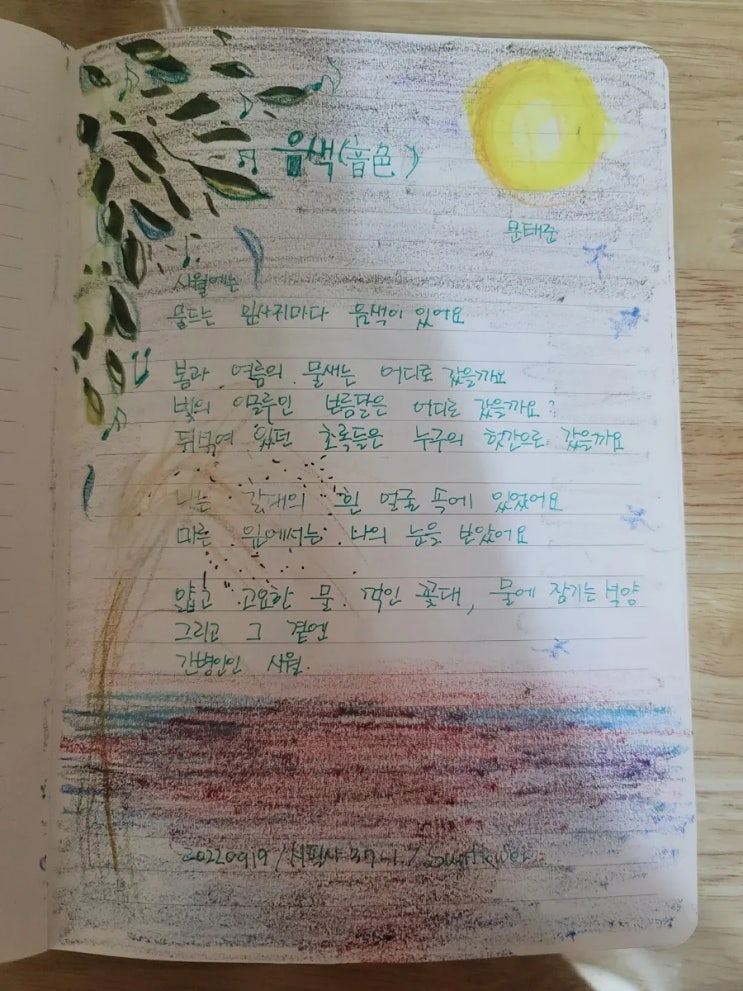 음색(音色)
문태준
사월에는
물드는 잎사귀마다 음색이 있어요
봄과 여름의 물새는 어디로 갔을까요
빛의 이글루인 보름달은 어디로 갔을까요?
뒤섞여 있던 초록들은 누구의 헛간으로 갔을까요
나는 갈대의 흰 얼굴 속에 있었어요
마른 잎에서는 나의 눈을 보았어요
얇고 고요한 물, 꺾인 꽃대, 물에 잠기는 석양
그리고 그 곁엔
간병인인 사월.
20220919 / 시필사 37 / Sunflower